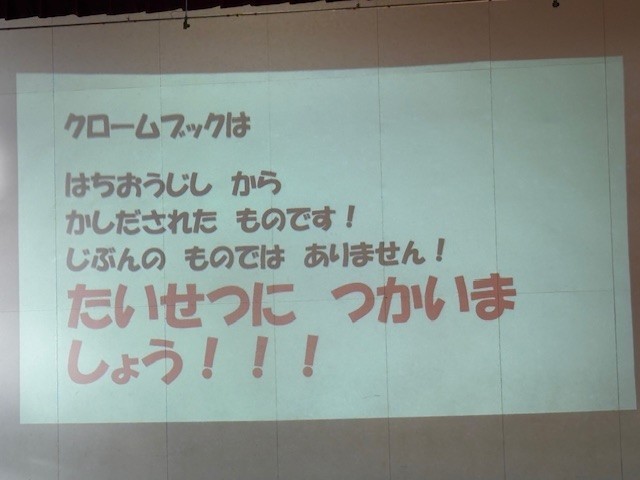 クロームブックは
はちおうじし から
かしだされた ものです！
じぶんの ものでは ありません！
たいせつに つかいま
しょう！！！